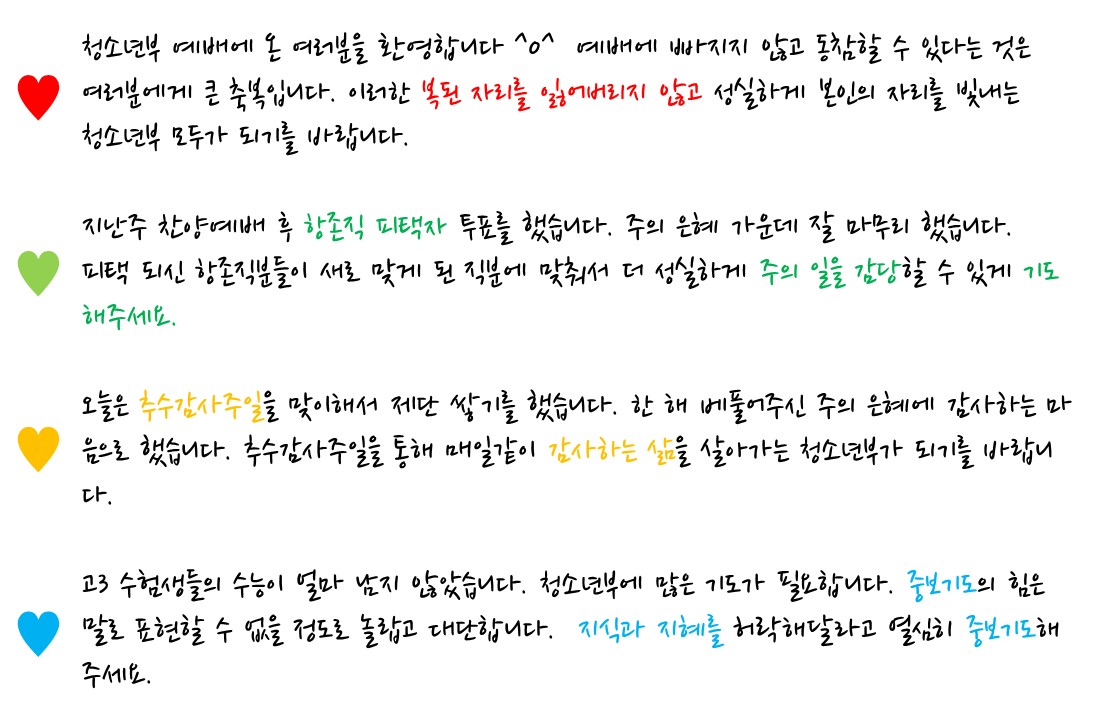 청소년부 예배에 온 여러분을 환영합니다 ^o^ 예배에 빠지지 않고 동참할 수 있다는 것은
여러분에게 큰 축복입니다. 이러한 복된 자리를 잃어버리지 않고 성실하게 본인의 자리를 빛내는
청소년부 모두가 되기를 바랍니다.
지난주 찬양예배 후 항존직 피택자 투표를 했습니다. 주의 은혜 가운데 잘 마무리 했습니다.
피택 되신 항존직분들이 새로 맞게 된 직분에 맞춰서 더 성실하게 주의 일을 감당할 수 있게 기도
해주세요.
오늘은 추수감사주일을 맞이해서 제단 쌓기를 했습니다. 한 해 베풀어주신 주의 은혜에 감사하는 마
음으로 했습니다. 추수감사주일을 통해 매일같이 감사하는 삶을 살아가는 청소년부가 되기를 바랍니
다.
고3 수험생들의 수능이 얼마 남지 않았습니다. 청소년부에 많은 기도가 필요합니다. 중보기도의 힘은
말로 표현할 수 없을 정도로 놀랍고 대단합니다. 지식과 지혜를 허락해달라고 열심히 중보기도해
주세요.